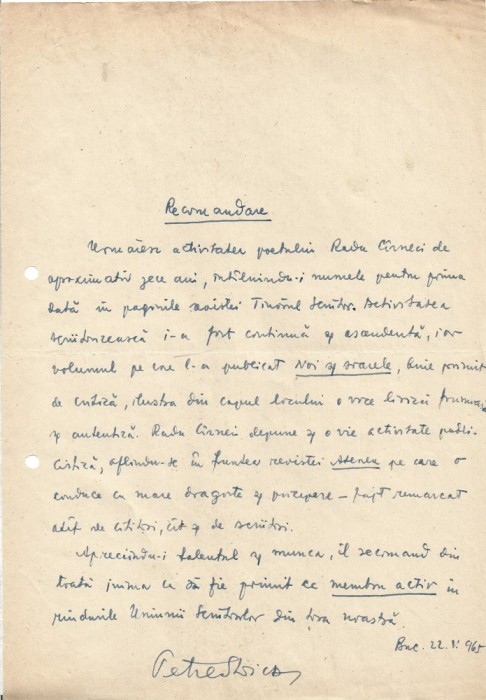 Recomandare
Urmăresc activitatea poetului Radu Cîrneci de
aproximativ zece ani, întîlnindu-i numele pentru prima
dată în paginile revistei Tînărul scriitor. Activitatea
scriitoricească i-a fost continuă și ascendentă, iar
volumul pe care l-a publicat Noi și soarele, bine primit
de critică, ilustra din capul locului o voce lirică frumoasă
și autentică. Radu Cîrneci depune și o vie activitate publi-
cistică, aflîndu-se în fruntea revistei Ateneu pe care o
conduce cu mare dragoste și pricepere – fapt remarcat
atît de cititori, cît și de scriitori.
Apreciindu-i talentul și munca, îl recomand din
toată inima ca să fie primit ca membru activ în
rîndurile Uniunii Scriitorilor din țara noastră.
Buc. 22. 965
Petre Stoica